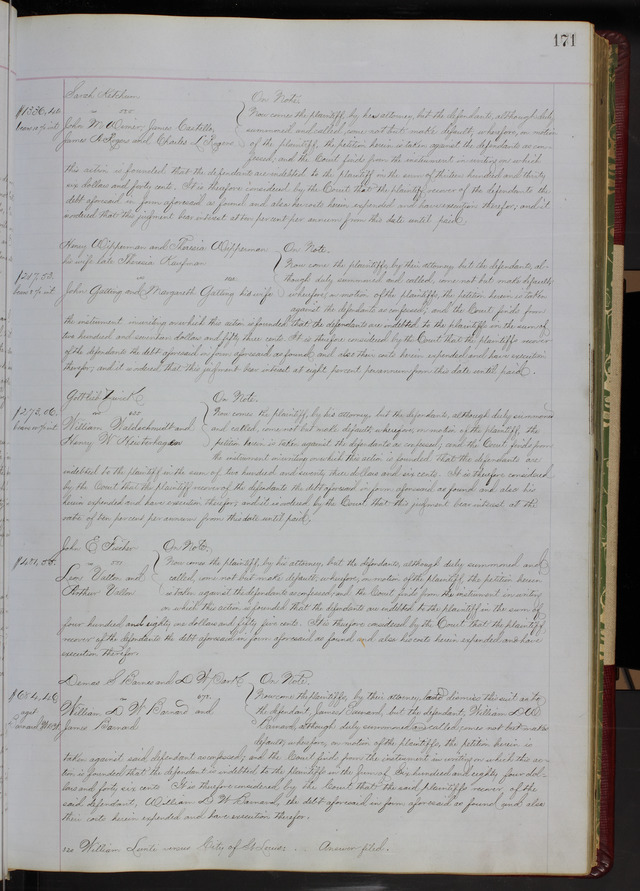 171
Sarah Ketchum
vs
John W. Weiner, James Costello,
James R. Rogers and Charles L. Rogers
$1336.40
On Note.
Now comes the plaintiff, by her attorney, but the defendants, although duly
summoned and called, come not but make default; wherefore, on motion
of the plaintiff, the petition herein is taken against the defendants as con-
fessed; and the Court finds from the instrument in writing on which
this action is founded that the defendants are indebted to the plaintiff in the sum of thirteen hundred and thirty
six dollars and forty cents. It is therefore considered by the Court that the plaintiff recover of the defendants the
debt aforesaid in form aforesaid as found and also her costs herein expended and have execution therefor; and it
is ordered that this judgment bear interest at ten per cent per annum from this date until paid.
Henry Wippermann and Theresia Wipperman
his wife late Theresia Kaufman
vs
John Gatting and Margareth Gatting his wife
$217.53
On Note.
Now come the plaintiffs, by their attorney, but the defendants, al-
though duly summoned and called, come not but make default;
wherefore, on motion of the plaintiffs, the petition herein is taken
against the defendants as confessed; and the Court finds from
the instrument in writing on which this action is founded that the defendants are indebted to the plaintiffs in the sum of
two hundred and seventeen dollars and fifty three cents. It is therefore considered by the Court that the plaintiffs recover
of the defendants the debt aforesaid in form aforesaid as found and also their costs herein expended and have execution
therefor; and it is ordered that this judgment bear interest at eight percent per annum from this date until paid.
Gottlieb
vs
William Waldschmidt and
Henry W. Heisterhagen
$273.06
On Note.
Now comes the plaintiff, by his attorney, but the defendants, although duly summoned
and called, come not but make default; wherefore, on motion of the plaintiff, the
petition herein is taken against the defendants as confessed; and the Court finds from
the instrument in writing on which this action is founded, that the defendants are
indebted to the plaintiff in the sum of two hundred and seventy three dollars and six cents. It is therefore considered
by the Court that the plaintiff recover of the defendants the debt aforesaid in form aforesaid as found and also his
costs herein expended and have execution therefor; and it is ordered, by the Court that this judgment bear interest at the
rate of ten per cent per annum from this date until paid.
John E. Fischer
vs
Leon Vallon and
Arthur Vallon
On Note.
Now comes the plaintiff, by his attorney, but the defendants, although duly summoned and
called, come not but make default; wherefore, on motion of the plaintiff, the petition herein
is taken against the defendants as confessed; and the Court finds from the instrument in writing
on which this action is founded that the defendants are indebted to the plaintiff in the sum of
four hundred and eighty one dollars and fifty five cents. It is therefore considered by the Court that the plaintiff
recover of the defendants the debt aforesaid in form aforesaid as found and also his costs herein expended and have
execution therefor.
Demas S. Barnes and D. W.
vs.
William D. W. Barnard and
James Barnard
$684.46
agst
On Note.
Now come the plaintiffs, by their attorney, and dismiss this suit as to
the defendant, James Barnard, but the defendant, William D. W.
Barnard, although duly summoned and called, comes not but makes
default; wherefore, on motion of the plaintiffs, the petition herein is
taken against said defendant as confessed; and the Court finds from the instrument in writing on which this ac-
tion is founded that the defendant is indebted to the plaintiffs in the sum of Six hundred and eighty four dol-
lars and forty six cents. It is therefore considered by the Court that the said plaintiffs recover of the
said defendant, William D. W. Barnard, the debt aforesaid in form aforesaid as found and also
their costs herein expended and have execution therefor.
William versus City of St. Louis. Answer filed.